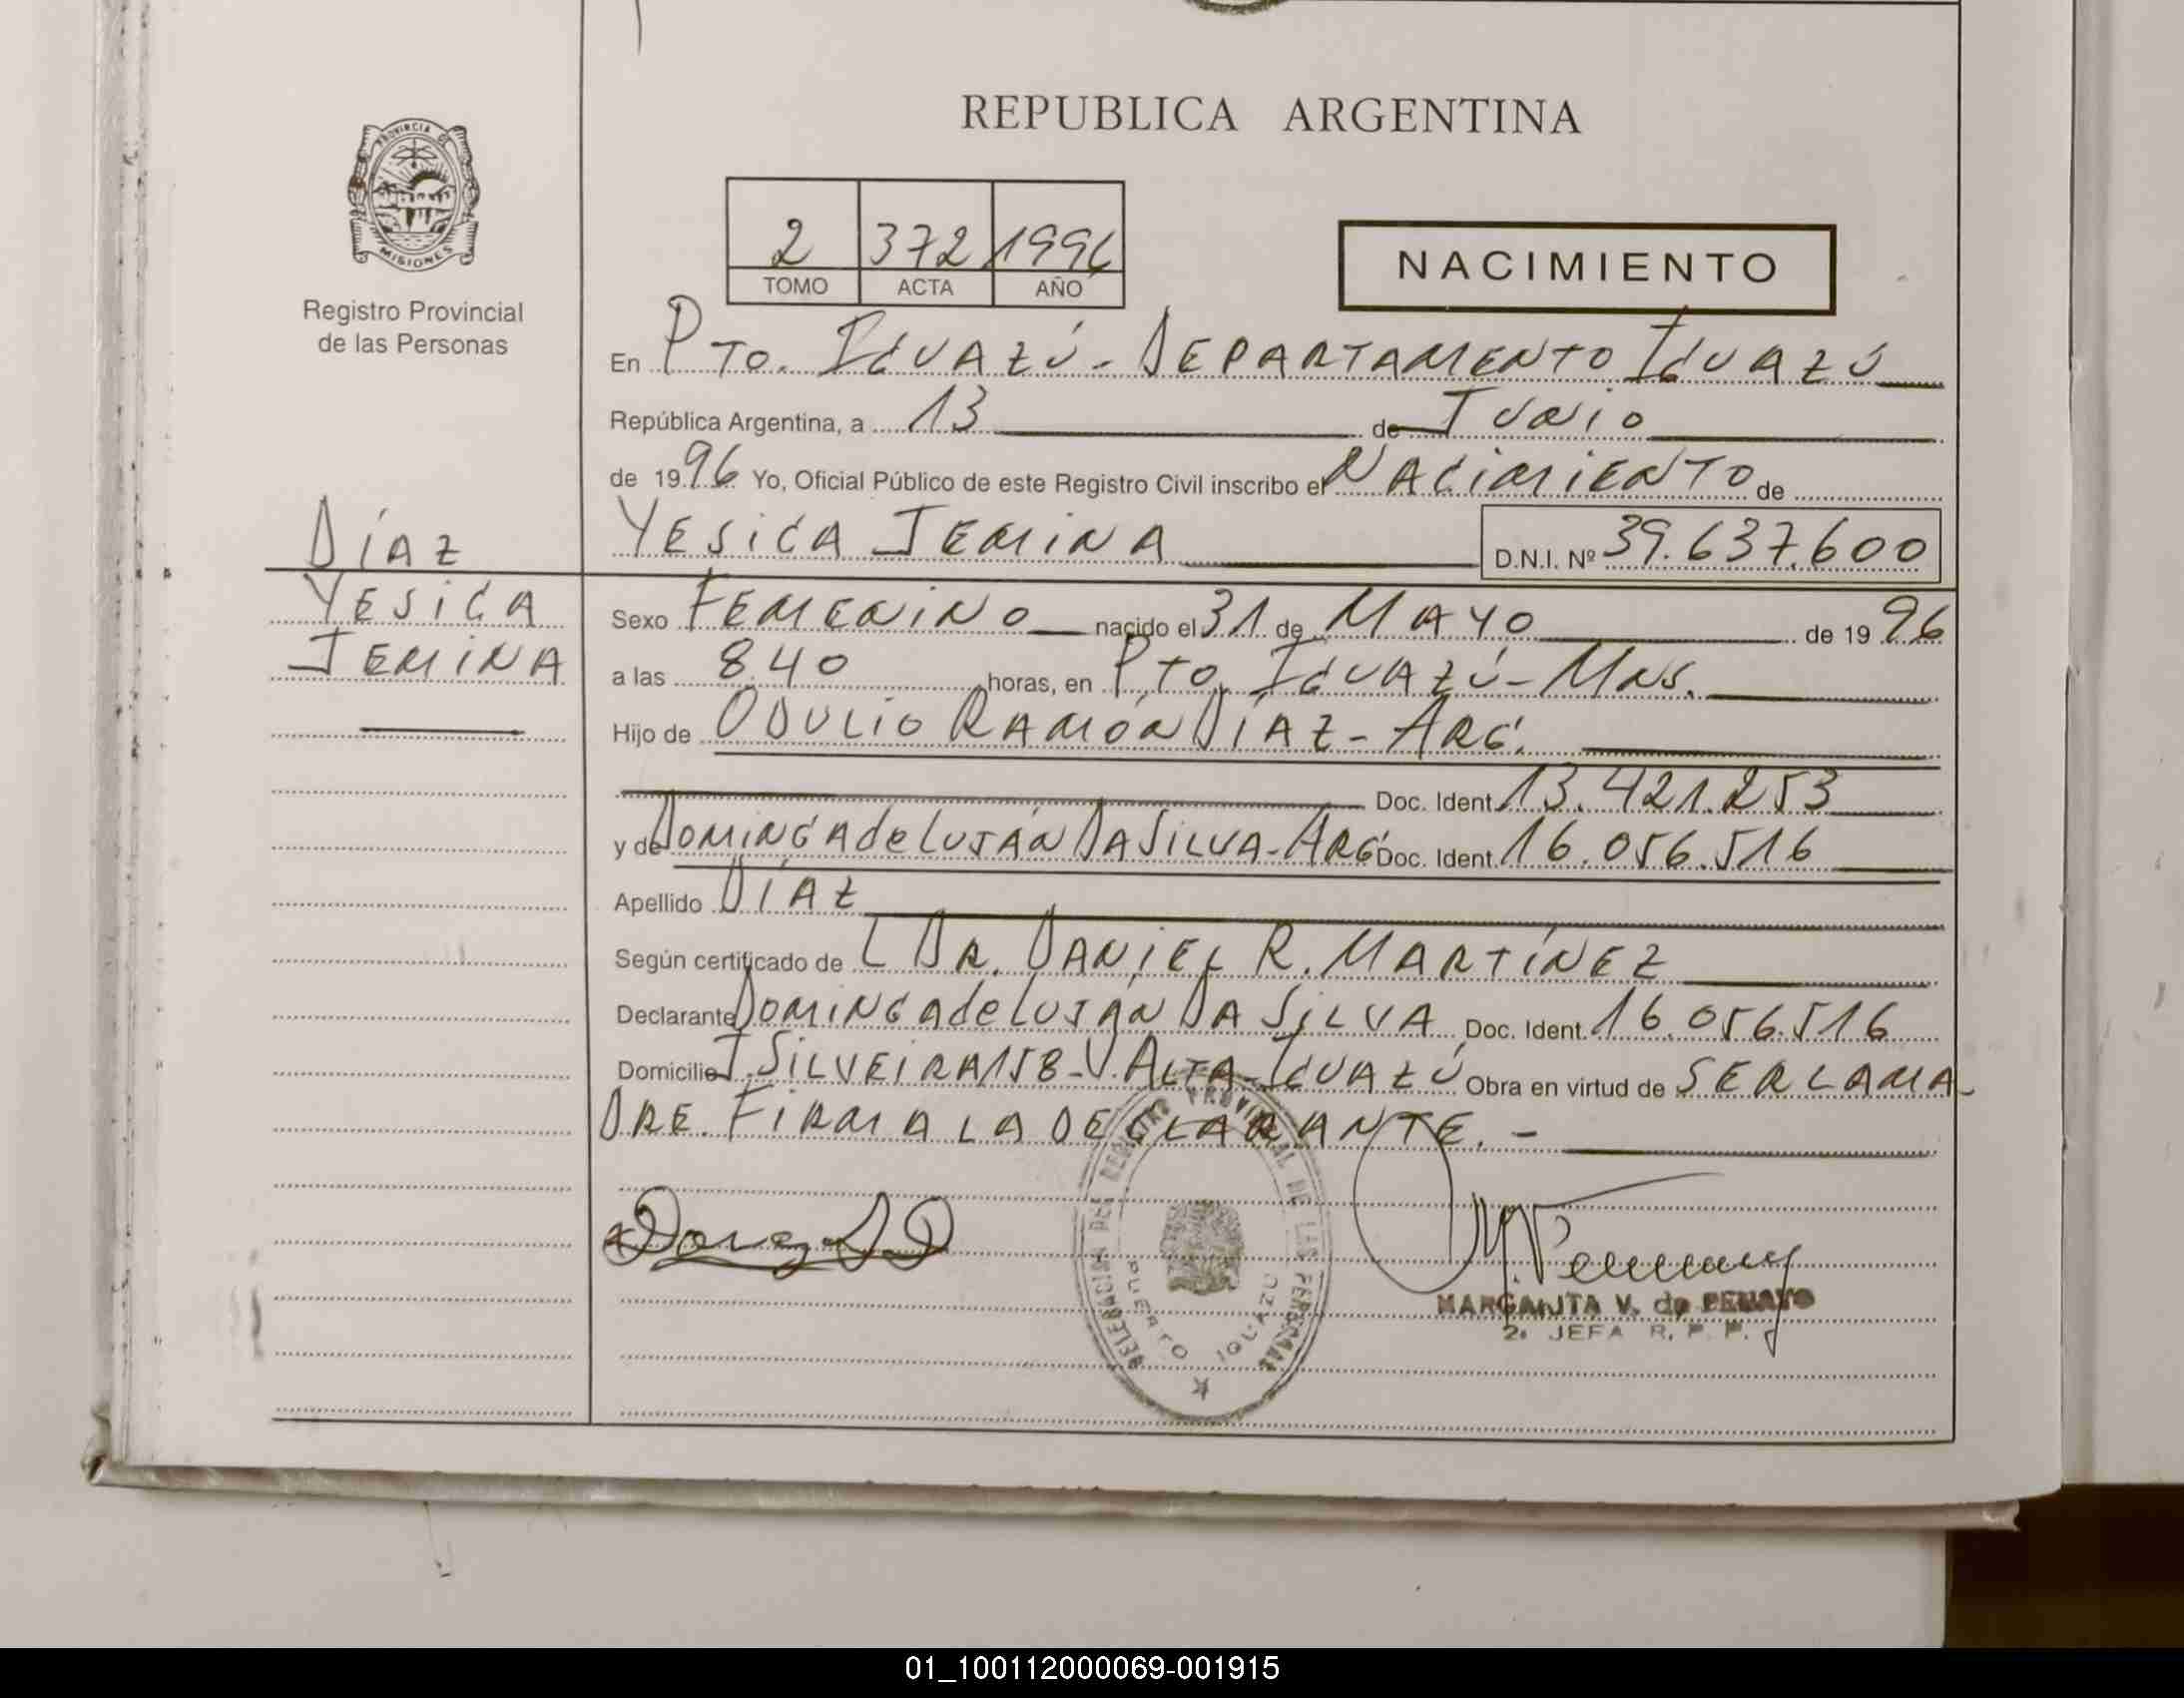 REPUBLICA ARGENTINA
PROVINCIA DE MISIONES
Registro Provincial
de las Personas
2 372 1996
TOMO ACTA AÑO
NACIMIENTO
En PTO. IGUAZÚ - DEPARTAMENTO IGUAZÚ
República Argentina, a 13 de JUNIO
de 1996 Yo, Oficial Público de este Registro Civil inscribo el NACIMIENTO de
YESICA JEMINA D.N.I. Nº 39.637.600
DÍAZ
YESICA
JEMINA
Sexo FEMENINO nacido el 31 de MAYO de 1996
a las 8.40 horas, en PTO. IGUAZÚ - MNS.
Hijo de ODULIO RAMÓN DÍAZ - ARG.
Doc. Ident. 13.421.253
y de DOMINGA de LUJÁN DA SILVA - ARG. Doc. Ident. 16.056.516
Apellido DÍAZ
Según certificado de L DR. DANIEL R. MARTÍNEZ
Declarante DOMINGA de LUJÁN DA SILVA Doc. Ident. 16.056.516
Domicilio J. SILVEIRA 158 - V. ALTA - IGUAZÚ Obra en virtud de SER LA MA-
DRE. FIRMA LA DECLARANTE. -
DELEGACION DEL REGISTRO PROVINCIAL DE LAS PERSONAS
PUERTO IGUAZU
MARGARITA V. de
2ª JEFA R. P. P.
01_100112000069-001915